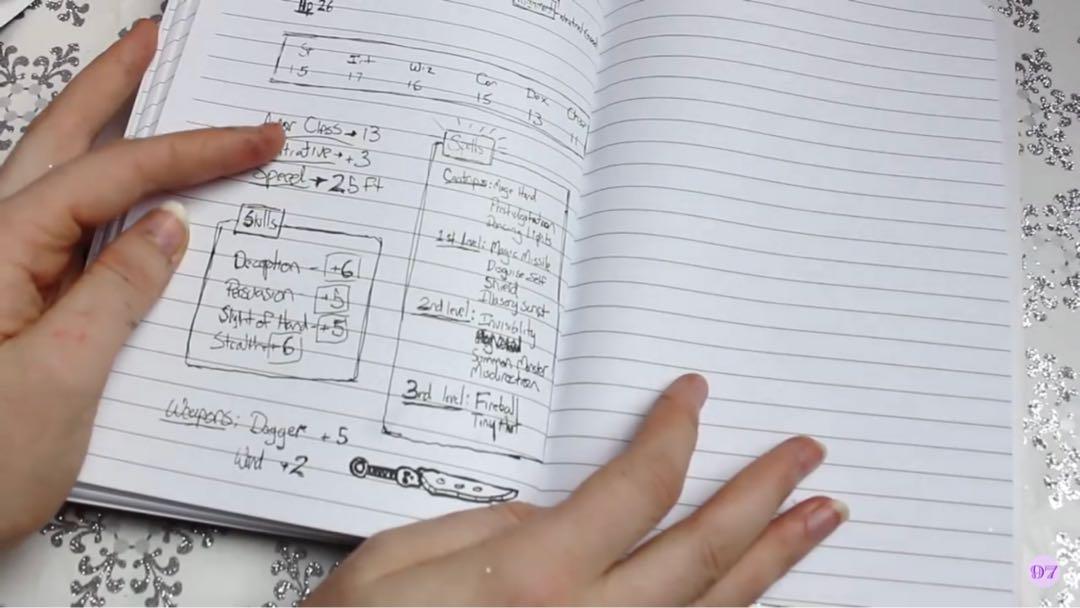 HP 26
St Int Wiz Con Dex
+5 +7 +6 +5 +3
Class → 13
+3
Speed → 25 Ft
Skills
Deception - +6
Persuasion +5
Slight of Hand - +5
Stealth +6
Weapons: Dagger +5
Wand +2
Cantrips: Mage Hand
Prestidigitation
Dancing Lights
1st level: Magic Missile
Disguise Self
Shield
Illusory Script
2nd level: Invisiblity
Summon Monster
Misdirection
3rd level: Fireball
Tiny Hut
97